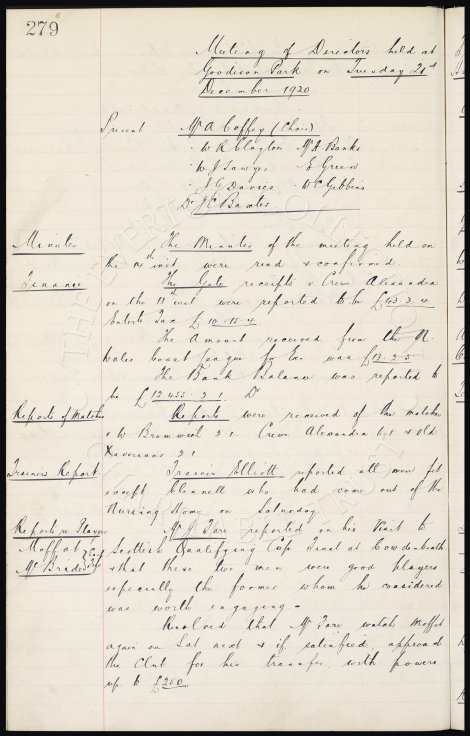 279
Meeting of Directors held at
Goodison Park on Tuesday 21st
December 1920
Present Mr A Coffey (Chair)
" W R Clayton Mr A Banks
" W J Sawyer E Green
" J G Davies W C Gibbins
Dr J C Baxter
Minutes The Minutes of the meeting held on
the 14th inst were read & confirmed.
Finance The Gate receipts v Crewe Alexandra
on the 18th inst were reported to be £43.3.4
Enterts Tax £10-15-4
The Amount received from the N.
Wales Coast League for tax was £13-2-5
The Bank Balance was reported to
be £12,455 2 1. Dr
Reports of Matches Reports were received of the matches
v W Bromwich 2 1. Crewe Alexandra & v Old
Xaverians 2 1
Trainers Report Trainer Elliott reported all men fit
except Clennell who had come out of the
Nursing Home on Saturday
Reports re Players Mr J Fare reported on his visit to
Moffat Scottish Qualifying Cup Final at Cowdenbeath
Mc Brade & that these two men were good players
especially the former whom he considered
was worth engaging -
Resolved that Mr Fare watch Moffat
again on Sat next & if satisfied, approach
the Club for his transfer with powers
up to £250